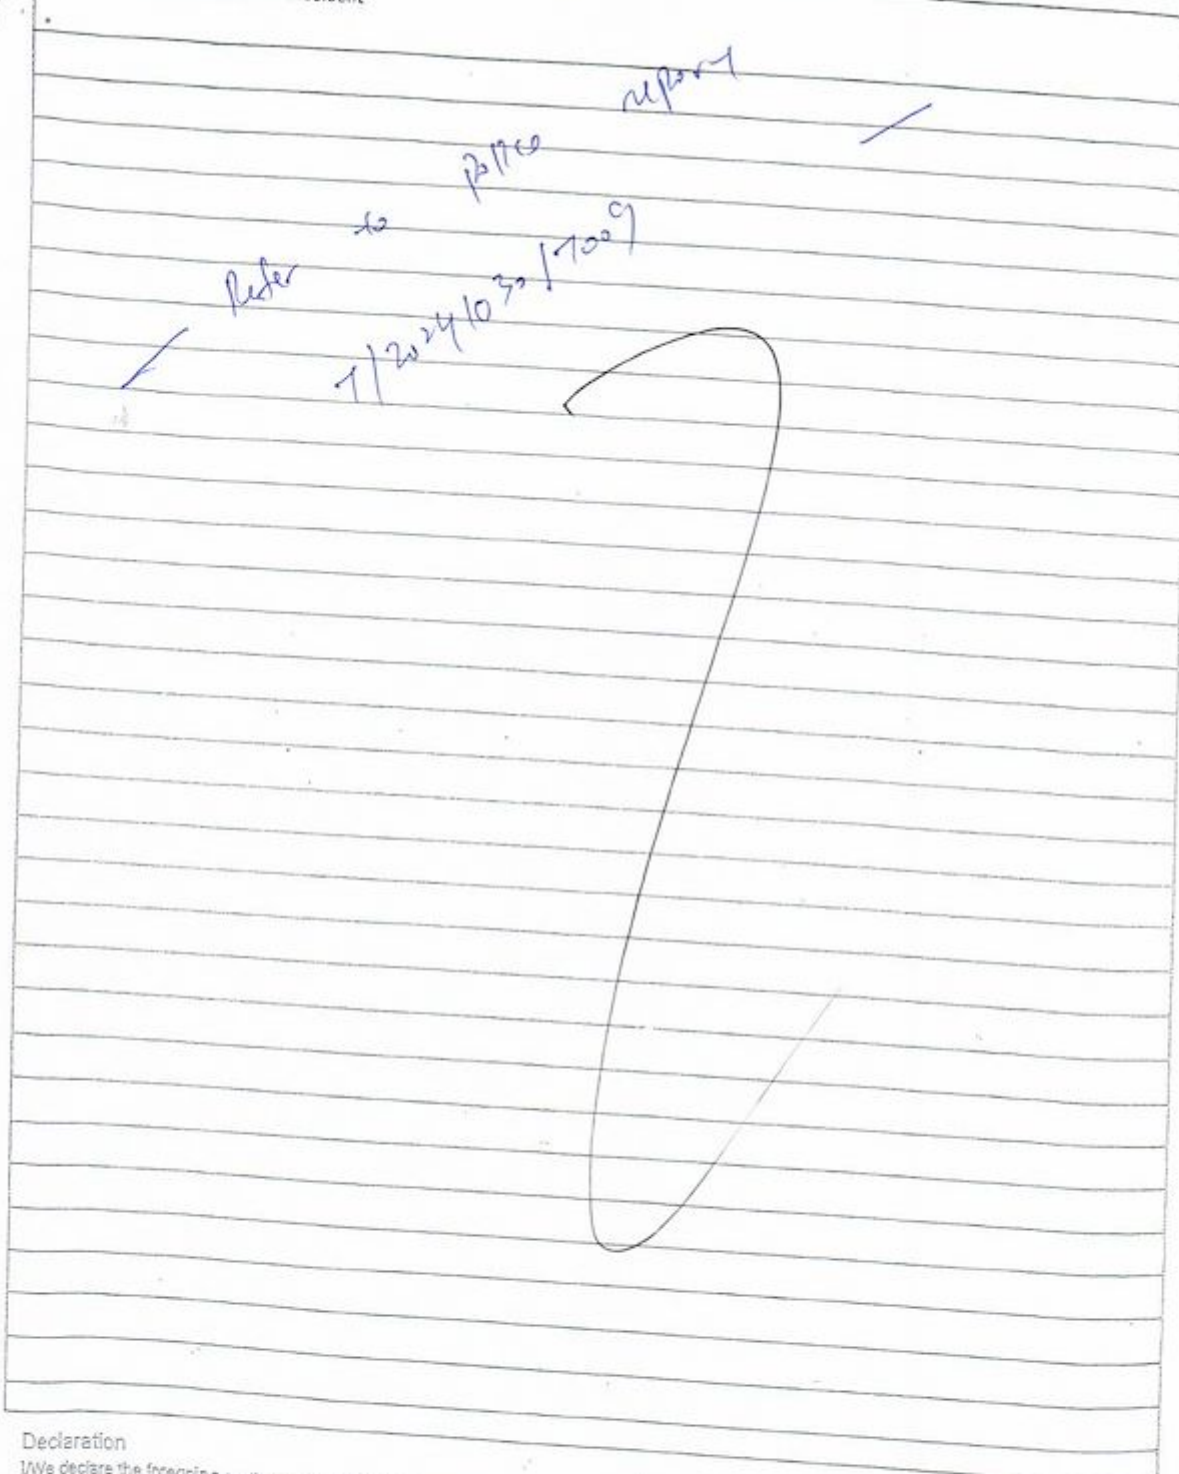 Refer to police report
T/20241030/7009
Declaration
I/We declare the foregoing